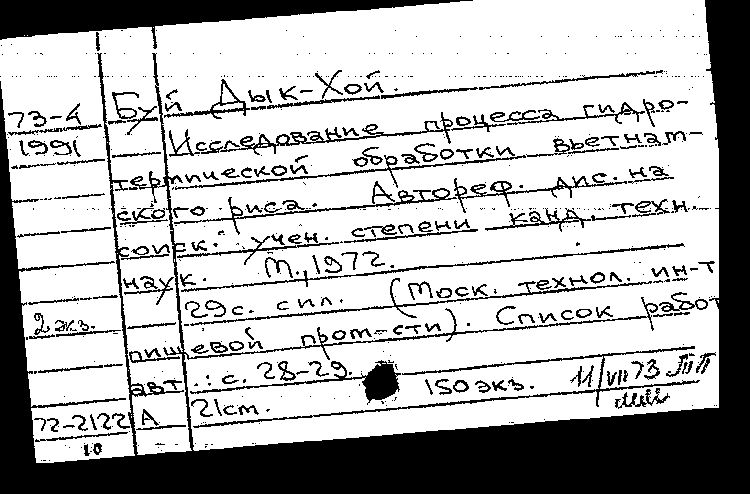 Буй Дык-Хой.
73-4
1991
Исследование процесса гидро-
термической обработки вьетнам-
ского риса. Автореф. дис. на
соиск. учен. степени канд. техн.
наук. М., 1972.
29с. с ил. (Моск. технол. ин-т
2 экз.
пищевой пром-сти). Список работ
авт.: с. 28-29. 150 экз. 11/VII 73
72-2122 А 21см.
10